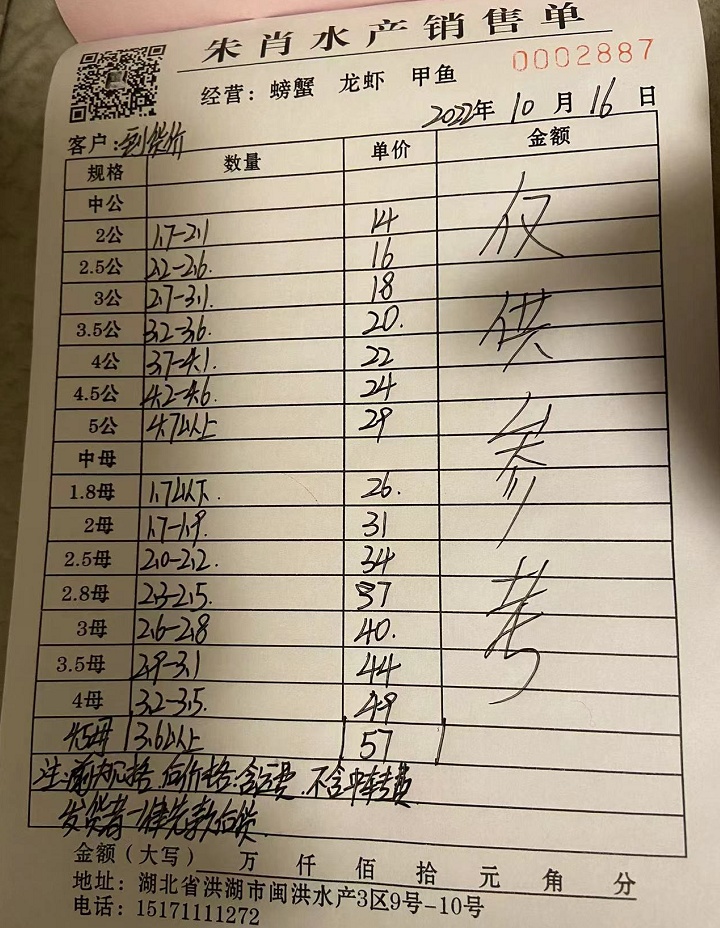 朱肖水产销售单
经营：螃蟹 龙虾 甲鱼
0002887
2022年10月16日
客户：到货价
规格 数量 单价 金额
中公
2公 1.7-2.1 14
2.5公 2.2-2.6. 16
3公 2.7-3.1 18
3.5公 3.2-3.6. 20.
4公 3.7-4.1 22
4.5公 4.2-4.6 24
5公 4.7以上 29
中母
1.8母 1.7以下. 26.
2母 1.7-1.9. 31
2.5母 2.0-2.2 34
2.8母 2.3-2.5. 37
3母 2.6-2.8 40.
3.5母 2.9-3.1 44
4母 3.2-3.5. 49
4.5母 3.6以上 57
仅供参考
含运费.不含中转费
发货者一律先款后货.
金额（大写） 万 仟 佰 拾 元 角 分
地址：湖北省洪湖市闽洪水产3区9号-10号
电话：15171111272